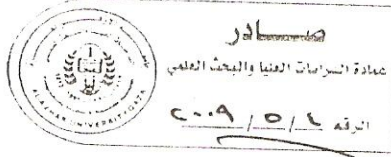 صادر
عمادة الدراسات العليا والبحث العلمي
الرقم ٤/٥/٢٠٠٩
ALAZHAR UNIVERSITY-GAZA